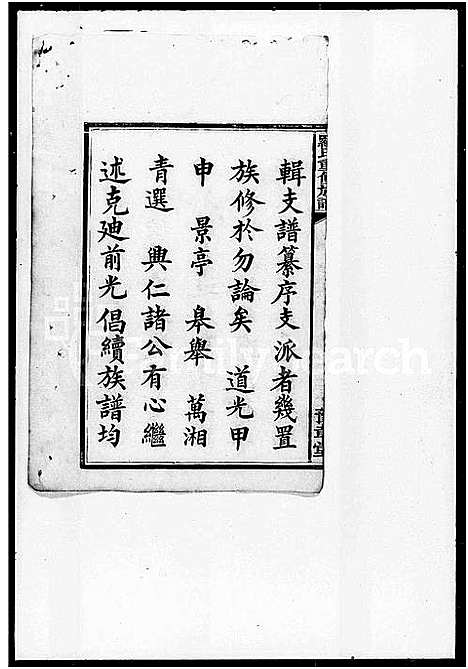 羅氏重修族譜
豫章堂
輯支譜纂序支派者幾置
族修於勿論矣 道光甲
申 景亭 皋舉 萬湘
青選 興仁諸公有心繼
述克廸前光倡續族譜均
FamilySearch